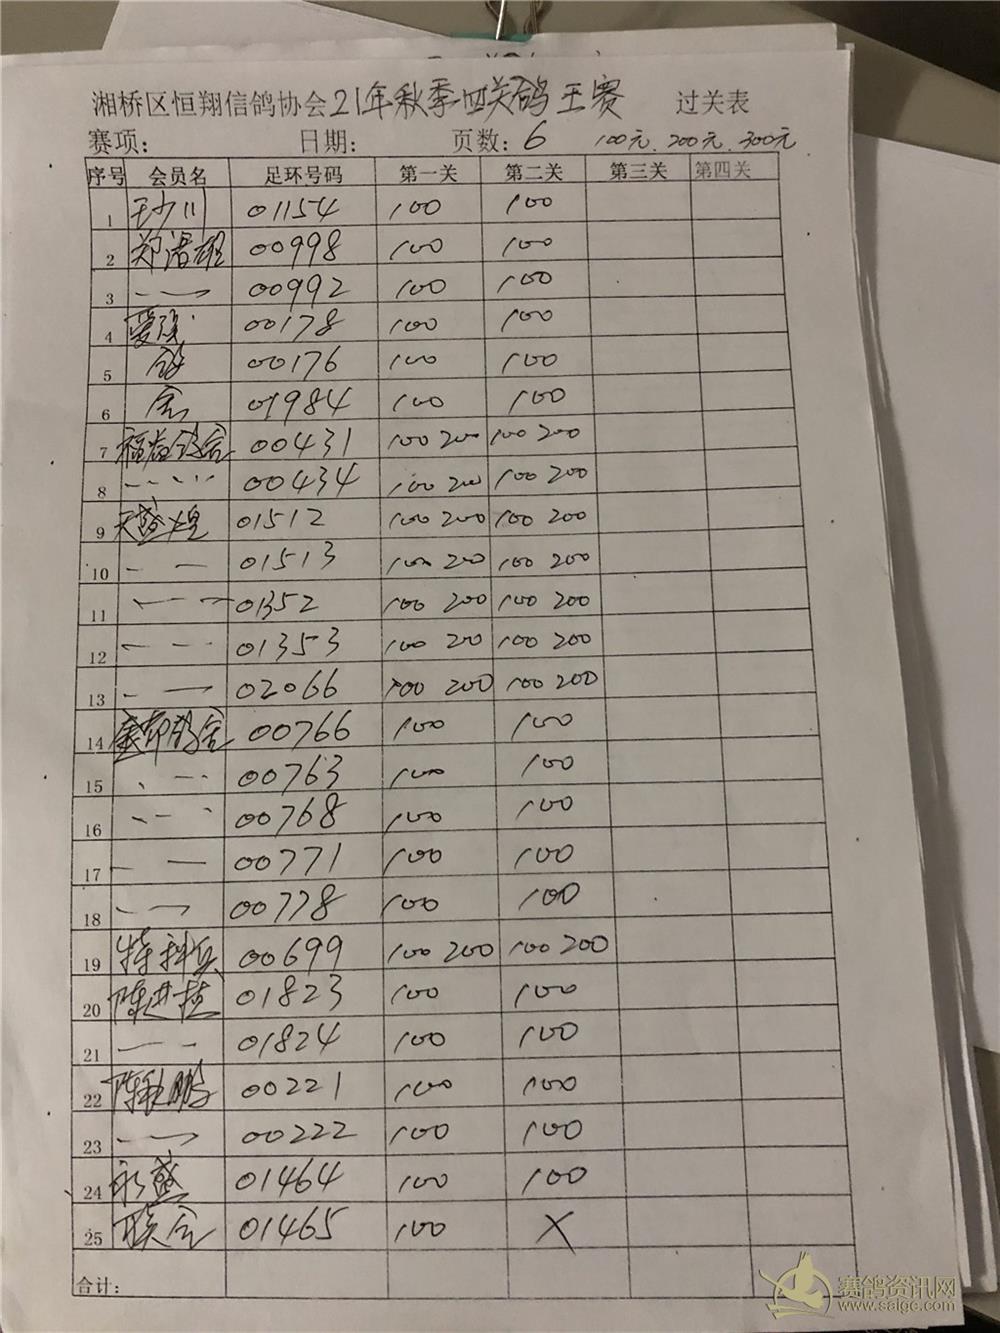 湘桥区恒翔信鸽协会21年秋季四关鸽王赛 过关表
赛项: 日期: 页数: 6 100元.200元.300元
序号 会员名 足环号码 第一关 第二关 第三关 第四关
1 王少川 01154 100 100
2 郑 雄 00998 100 100
3 00992 100 100
4 爱 00178 100 100
5 鸽 00176 100 100
6 舍 01984 100 100
7 福 鸽舍 00431 100 200 100 200
8 00434 100 200 100 200
9 天 煌 01512 100 200 100 200
10 01513 100 200 100 200
11 01352 100 200 100 200
12 01353 100 200 100 200
13 02066 100 200 100 200
14 鸽舍 00766 100 100
15 00763 100 100
16 00768 100 100
17 00771 100 100
18 00778 100 100
19 特种兵 00699 100 200 100 200
20 陈进 01823 100 100
21 01824 100 100
22 陈秋鹏 00221 100 100
23 00222 100 100
24 永盛 01464 100 100
25 联合 01465 100 X
合计:
赛鸽资讯网
www.saigc.com